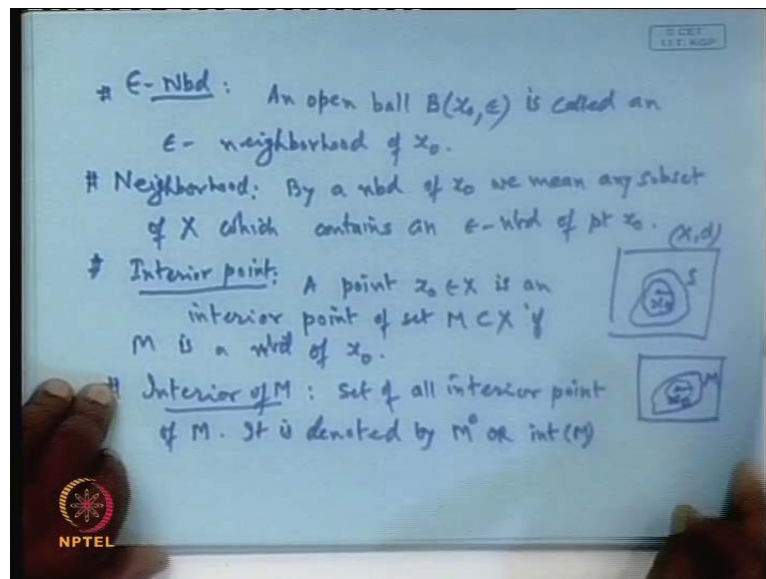 © CET
I.I.T. KGP
# ε-Nbd : An open ball B(x₀, ε) is called an
ε- neighborhood of x₀.
# Neighborhood: By a nbd of x₀ we mean any subset
of X which contains an ε-nbd of pt x₀.
(X,d)
S
x₀
# Interior point: A point x₀ ∈ X is an
interior point of set M ⊂ X if
M is a nbd of x₀.
# Interior of M : Set of all interior point
of M. It is denoted by M° OR int(M)
M
x₀
NPTEL